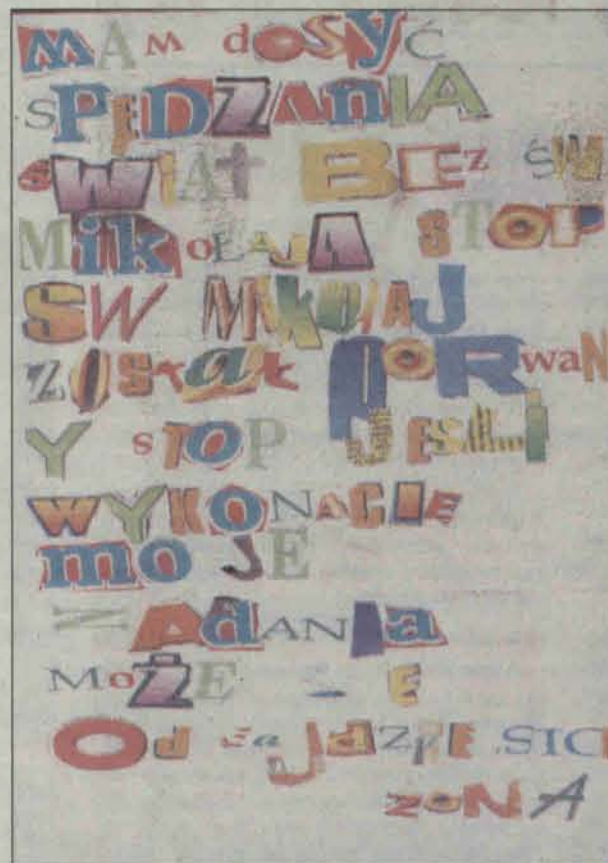 MAM dOSyĆ
SPĘDZAnIA
ŚWIĄt BEZ ŚW
MikOŁAJA STOP
SW MIKOłAJ
ZOStał PORwaN
Y sTOP JESLi
WYKONACIE
mO JE
ŻAdANIa
MoŻE
Od
ZONA